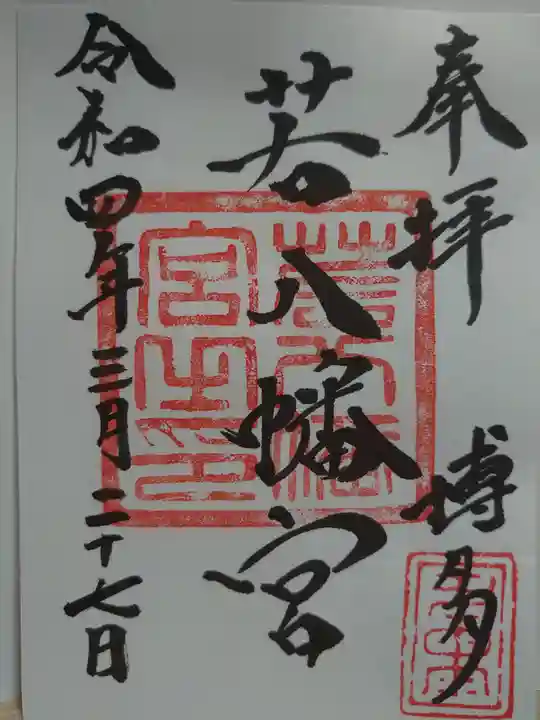 奉拝 博多
若八幡宮
若八幡宮之印
令和四年三月二十七日